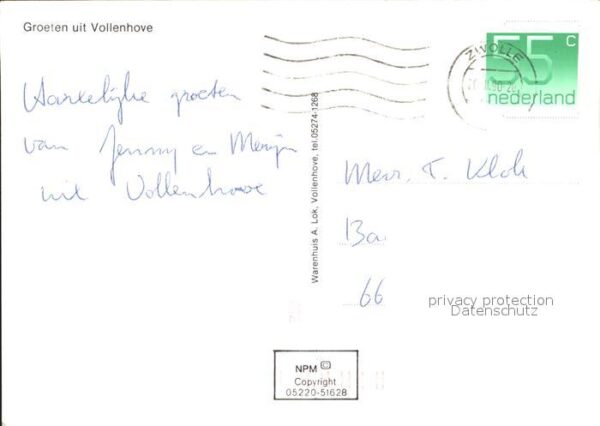 Groeten uit Vollenhove
55 c
nederland
ZWOLLE
Hartelijke groeten
van Jenny en Merijn
uit Vollenhove
Warenhuis A. Lok, Vollenhove, tel. 05274-1268
Mevr. T. Klok
66
privacy protection
Datenschutz
NPM ©
Copyright
05220-51628